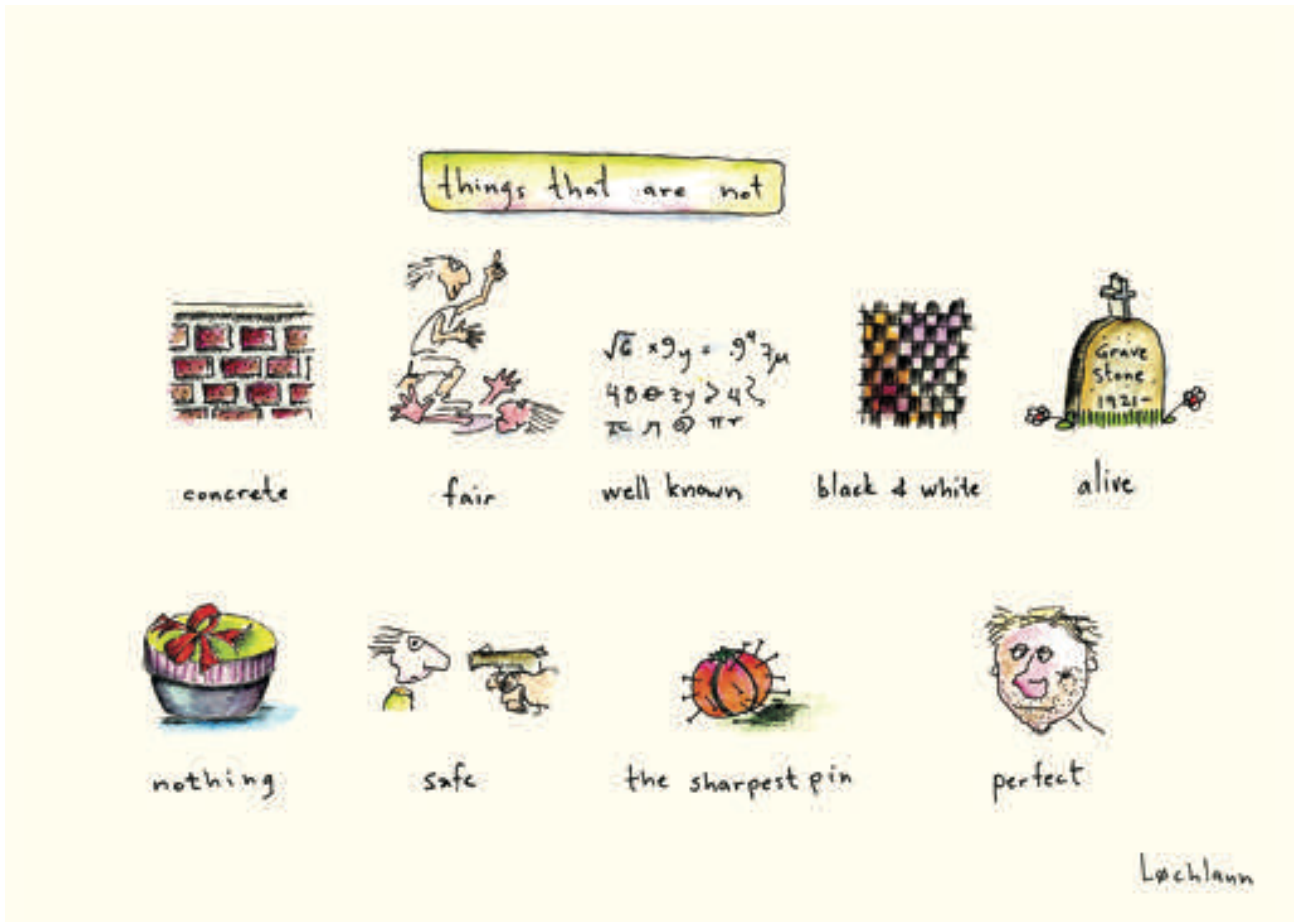 things that are not
Grave
stone
1921-
concrete
fair
well known
black & white
alive
nothing
safe
the sharpest pin
perfect
Løchlann